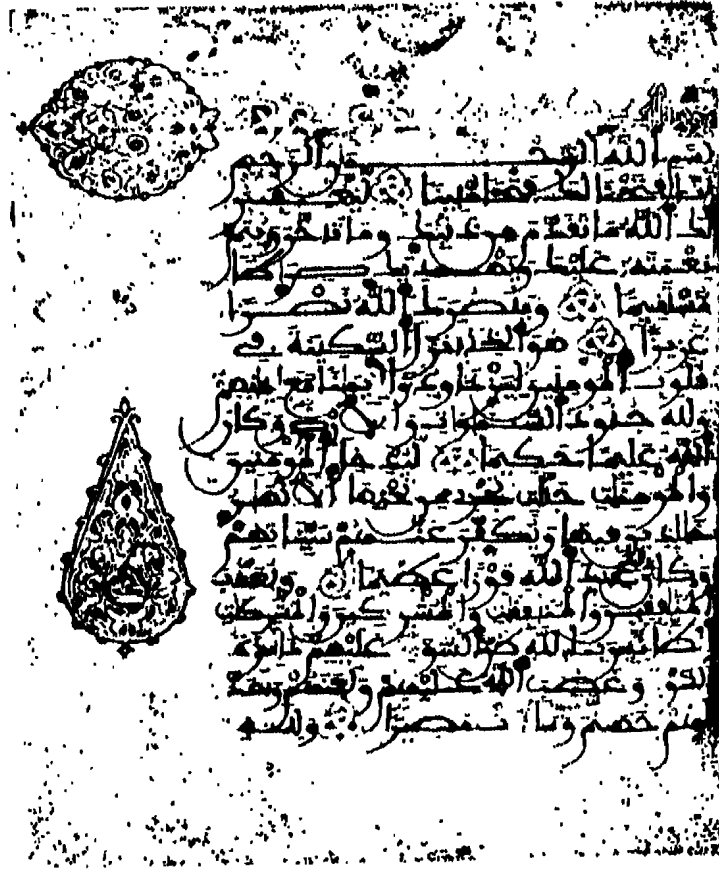 بسم الله الرحمن الرحيم
إنا فتحنا لك فتحا مبينا ليغفر
لك الله ما تقدم من ذنبك وما تأخر ويتم
نعمته عليك ويهديك صرطا
مستقيما وينصرك الله نصرا
عزيزا هو الذي أنزل السكينة في
قلوب المؤمنين ليزدادوا إيمنا مع إيمنهم
ولله جنود السموات والأرض وكان
الله عليما حكيما ليدخل المؤمنين
والمؤمنت جنت تجري من تحتها الأنهر
خلدين فيها ويكفر عنهم سيئاتهم
وكان ذلك عند الله فوزا عظيما ويعذب
المنفقين والمنفقت والمشركين والمشركت
الظانين بالله ظن السوء عليهم دائرة
السوء وغضب الله عليهم ولعنهم وأعد
لهم جهنم وساءت مصيرا ولله